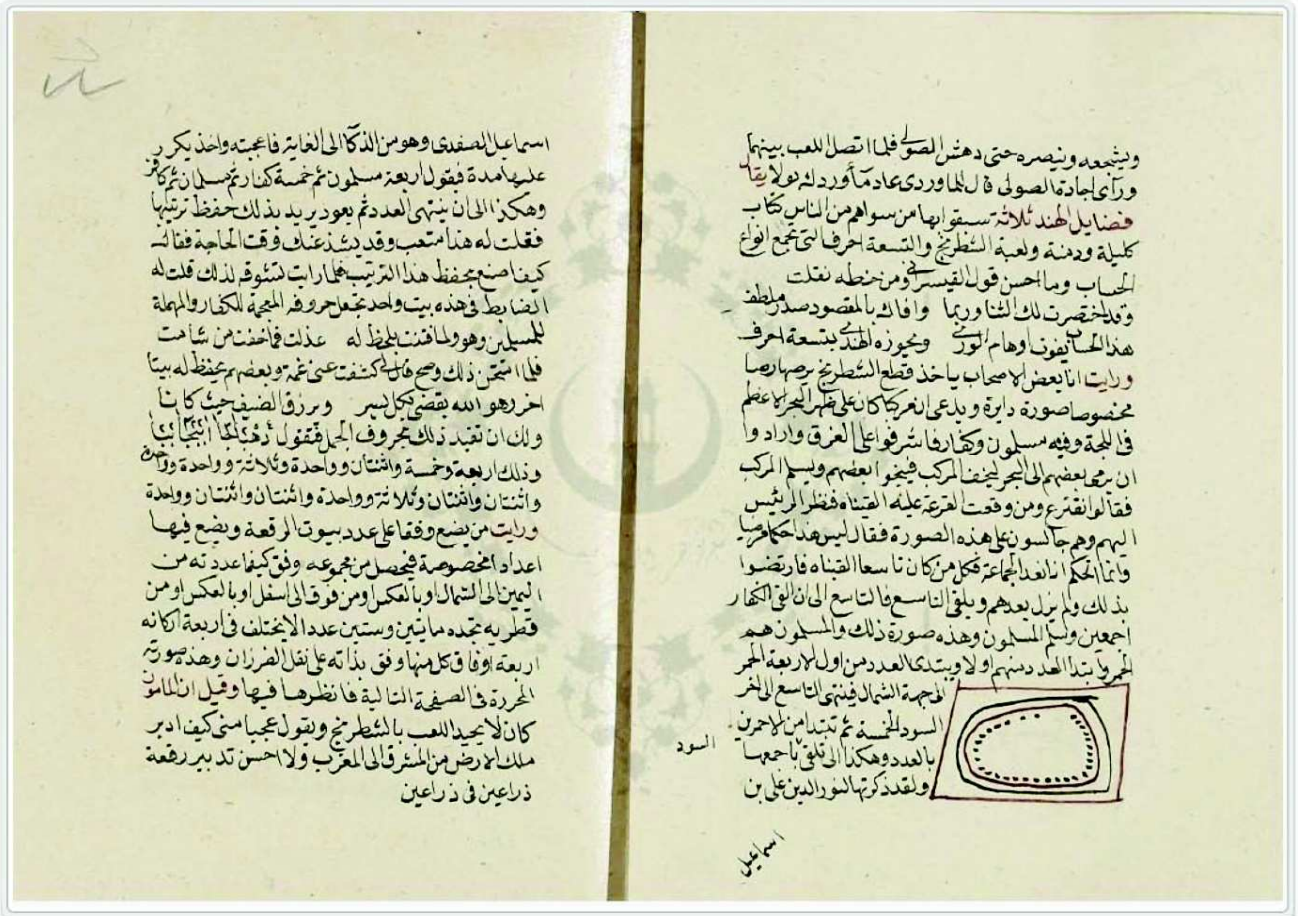 ويشجعه وينصره حتى دهش الصولي فلما اتصل اللعب بينهما
ورآى اجادة الصولى قال للماوردى عاد مآ وردك بولا يقال
فضايل الهند ثلاثة سبقوا بها من سواهم من الناس كتاب
كليلة ودمنة ولعبة الشطرنج والتسعة احرف التى تجمع انواع
الحساب وما احسن قول القيسرانى ومن خطه نقلت
وقد اختصرت لك الثنا وربما وافاك بالمقصود صدر ملطف
هذا الحساب يفوت اوهام الورى ويحوزه الهندى بتسعة احرف
ورايت انا بعض الاصحاب ياخذ قطع الشطرنج يرصها رصا
مخصوصا صورة دايرة ويدعى ان مركبا كان على ظهر البحر الاعظم
فى اللجة وفيه مسلمون وكفار فاشرفوا على الغرق واراد وا
ان يرمى بعضهم الى البحر ليخف المركب فينجوا بعضهم ويسلم المركب
فقالوا نقترع ومن وقعت القرعة عليه القيناه فنظر الرئيس
اليهم وهم جالسون على هذه الصورة فقال ليس هذا حكما مرضيا
وانما الحكم انا نعد الجماعة فكل من كان تاسعا القيناه فارتضوا
بذلك ولم يزل يعدهم ويلقى التاسع فالتاسع الى ان القى الكفار
اجمعين وسلم المسلمون وهذه صورة ذلك والمسلمون هم
الحمر وابتدا العدد منهم اولا ويبتدى العدد من اول الاربعة الحمر
الى جهة الشمال فينتهى التاسع الى اخر
السود الخمسة ثم تبتدا من الاحمرين
بالعدد وهكذا الى تلقى باجمعها
السود
ولقد ذكرتها لنور الدين على بن
اسماعيل
اسماعيل الصفدى وهو من الذكآ الى الغاية فاعجبته واخذ يكرر
عليها مدة فيقول اربعة مسلمون ثم خمسة كفار ثم مسلمان ثم كافر
وهكذا الى ان ينتهى العدد ثم يعود يريد بذلك حفظ ترتيبها
فقلت له هذا متعب وقد يشذ عنك وقت الحاجة فقال
كيف اصنع بحفظ هذا الترتيب فلما رايت تشوقه لذلك قلت له
الضابط فى هذه بيت واحد تجعل حروفه المعجمة للكفار والمهملة
للمسلمين وهو ولما فتنت بلحظ له عذلت فما خفت من شامت
فلما امتحن ذلك وصح قال لى كشفت عنى غمة وبعضهم يحفظ له بيتا
اخر وهو الله يقضى بكل يسر ويرزق الضيف حيث كانا
ولك ان تقيد ذلك بحروف الجمل فتقول
وذلك اربعة وخمسة واثنتان وواحدة وثلاثة وواحدة وواحدة
واثنتان واثنتان وثلاثة وواحدة واثنتان واثنتان وواحدة
ورايت من يضع وفقا على عدد بيوت الرقعة ويضع فيها
اعدادا مخصوصة فيحصل من مجموعه وفق كيفما عددته من
اليمين الى الشمال او بالعكس او من فوق الى اسفل او بالعكس او من
قطريه تجده مايتين وستين عددا لا يختلف فى اربعة اركانه
اربعة اوفاق كل منها وفق بذاته على نقل الفرزان وهذه صورته
المحررة فى الصفحة التالية فانظرها فيها وقيل ان المامون
كان لا يجيد اللعب بالشطرنج ويقول عجبا منى كيف ادبر
ملك الارض من المشرق الى المغرب ولا احسن تدبير رقعة
ذراعين فى ذراعين